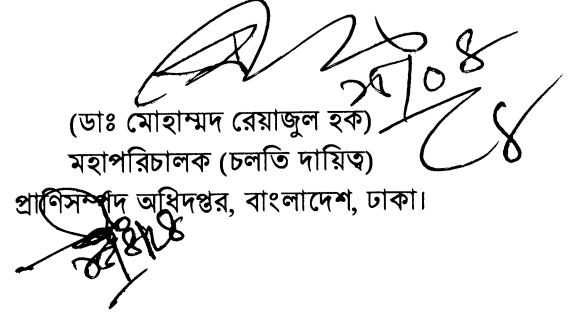 (ডাঃ মোহাম্মদ রেয়াজুল হক)
মহাপরিচালক (চলতি দায়িত্ব)
প্রাণিসম্পদ অধিদপ্তর, বাংলাদেশ, ঢাকা।